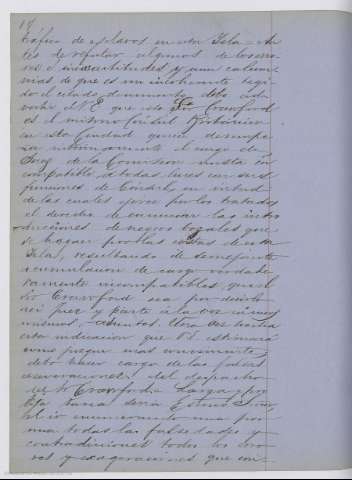 tráfico de esclavos en esta Isla. An
tes de refutar algunos de los erro
res é inexactitudes y aun calum
nias de que es un incoherente tegi
do el citado documento debo ad
vertir á VE que este Sr Crawford
es el mismo Cónsul Británico
en esta Ciudad quien desempe
ña interinamente el cargo de
Juez de la Comision mista in
compatible á todas luces con sus
funciones de Cónsul en virtud
de las cuales ejerce por los tratados
el derecho de enunciar las intro
ducciones de negros bozales que
se hagan por las costas de esta
Isla, resultando de semejante
acumulacion de cargos verdade
ramente incompatibles que el
Sr Crawford sea por decirlo
asi Juez y parte á la vez en unos
mismos asuntos. Una vez hecha
esta indicacion que VE estimará
como juzgue mas conveniente,
debo hacer cargo de las
observaciones del despacho
del Sr Crawford. Larga y pro
lija tarea seria Excmo Señor,
el ir enumerando una por
una todas las falsedades y
contradiciones todos los erro
res y exageraciones que con